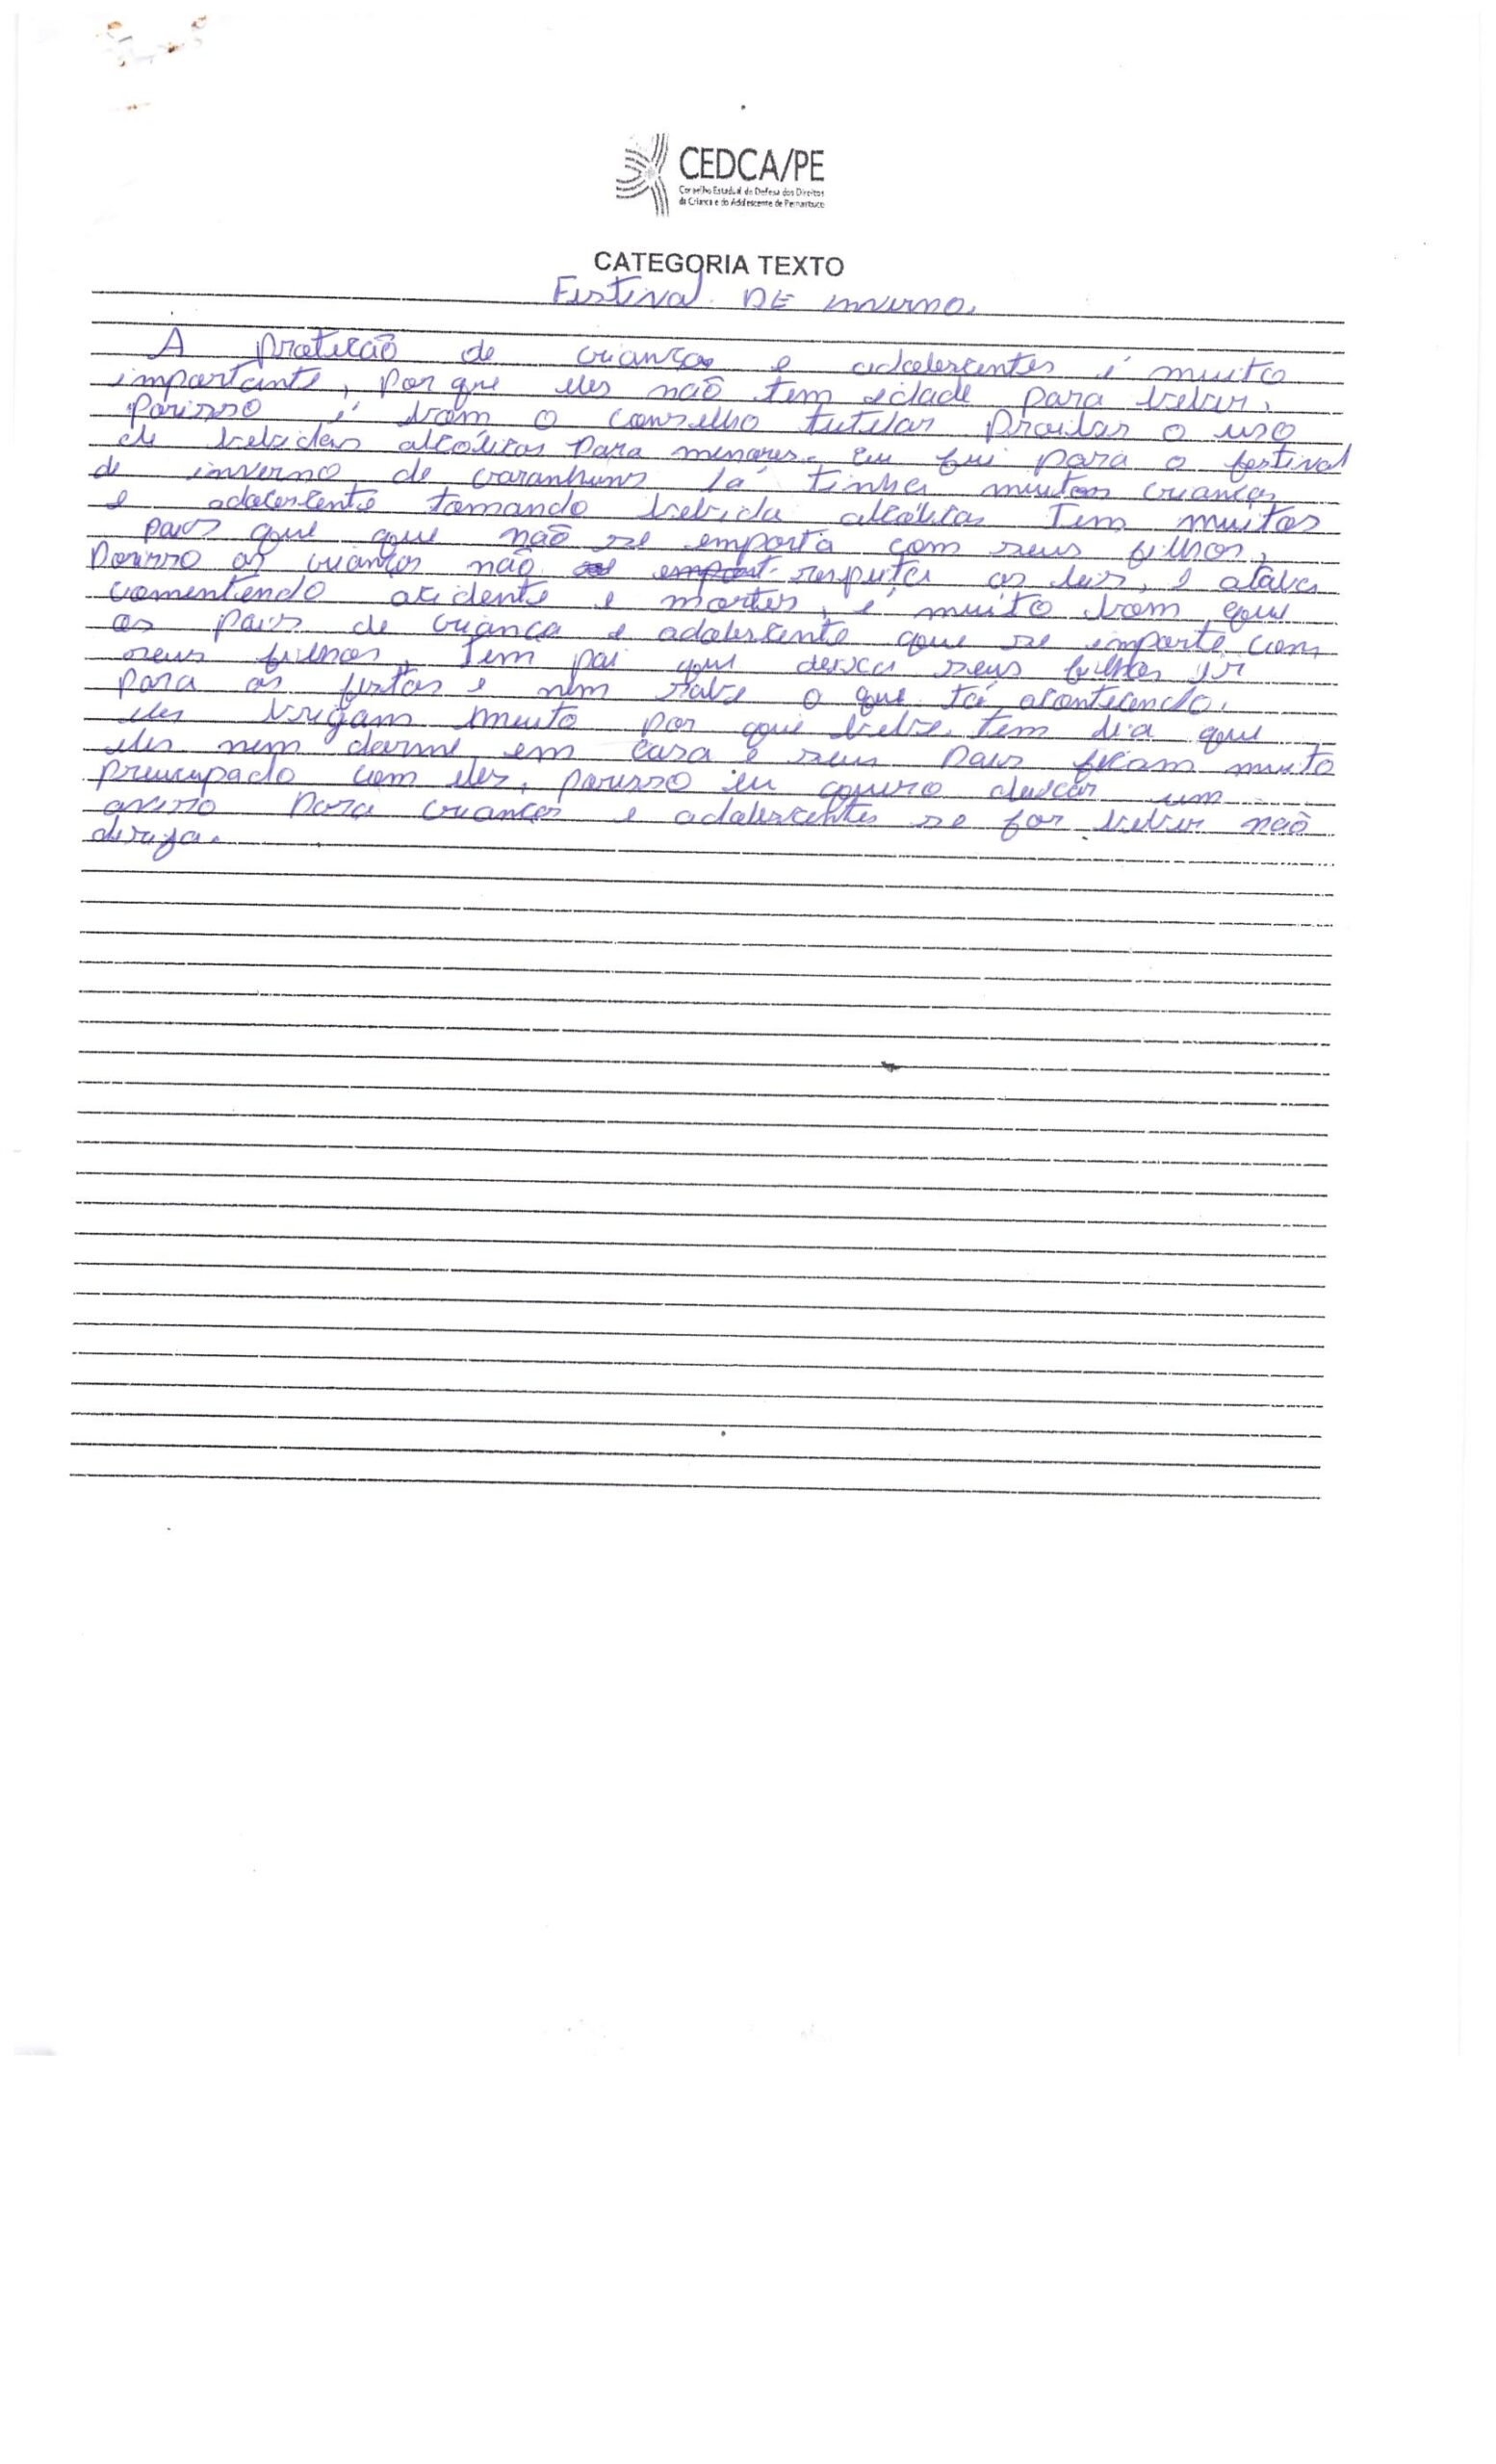 CEDCA/PE
Conselho Estadual de Defesa dos Direitos
da Criança e do Adolescente de Pernambuco
CATEGORIA TEXTO
Festival DE inverno.
A proteição de criança e adolescentes é muito
importante, por que eles não tem idade para beber,
porisso é bom o conselho tutelar Proibar o uso
de bebidas alcólicas para menores. Eu fui para o festival
de inverno de Garanhuns lá tinha muitas crianças
e adolescente tomando bebida alcólicas Tem muitos
pais que que não se emporta com seus filhos,
Porisso as crianças não respeita as leis, e acaba
comentendo acidente e mortes, é muito bom que
os pais de criança e adolescente que se importe com
seus filhos, Tem pai que deixa seus filhos ir
para as festas e nem sabe o que tá acontecendo.
eles brigam muito por que bebe. tem dia que
eles nem dorme em casa e seus pais ficam muito
preucupado com eles, porisso eu quero deixar um
aviso para crianças e adolescentes se for beber não
derija.